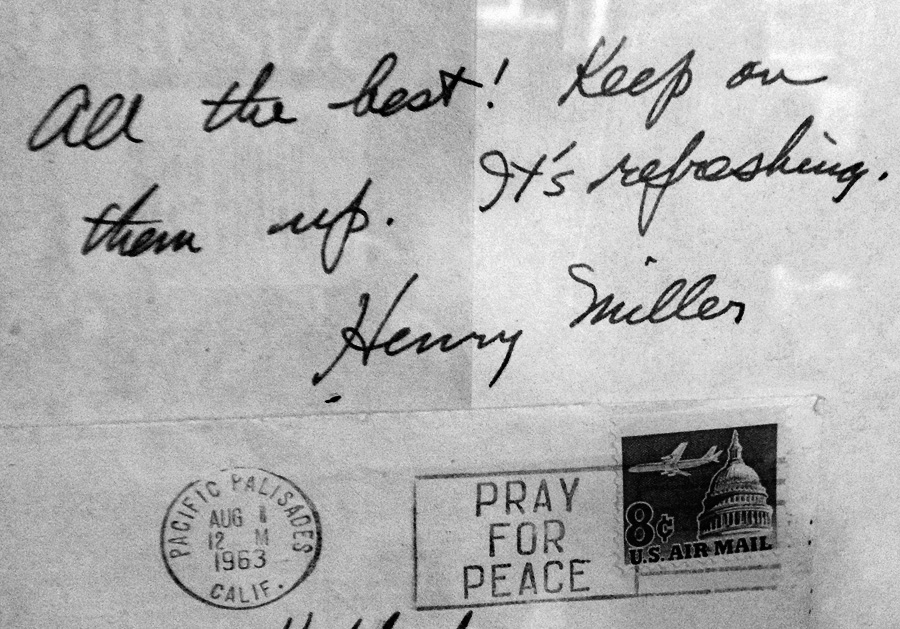 All the best! Keep on
them up. It's refreshing.
Henry Miller
PACIFIC PALISADES
AUG 1
12 M
1963
CALIF.
PRAY
FOR
PEACE
8¢
U.S. AIR MAIL